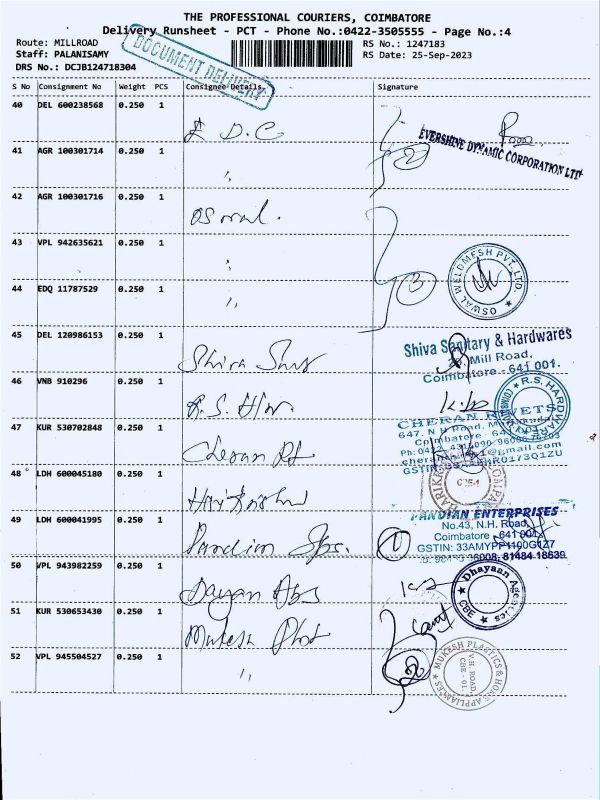 THE PROFESSIONAL COURIERS, COIMBATORE
Delivery Runsheet - PCT - Phone No.:0422-3505555 - Page No.:4
Route: MILLROAD
RS No.: 1247183
Staff: PALANISAMY
RS Date: 25-Sep-2023
DRS No.: DCJB124718304
DOCUMENT DELIVERY
S No Consignment No Weight PCS Consignee Details Signature
40 DEL 600238568 0.250 1
E D C
EVERSHINE DYNAMIC CORPORATION LTD
41 AGR 100301714 0.250 1
"
2
42 AGR 100301716 0.250 1
oswal.
43 VPL 942635621 0.250 1
"
OSWAL WELDMESH PVT. LTD.
44 EDQ 11787529 0.250 1
"
3
45 DEL 120986153 0.250 1
Shiva Sany
Shiva Sanitary & Hardwares
Mill Road,
Coimbatore - 641 001.
46 VNB 910296 0.250 1
R.S. Hw.
R.S. HARDWARE
47 KUR 530702848 0.250 1
Cheran Rt
CHERAN RIVETS
647. N H Road,
Coimbatore
48 LDH 600045180 0.250 1
49 LDH 600041995 0.250 1
Pandian
1
PANDIAN ENTERPRISES
No.43, N.H. Road,
Coimbatore - 641 001.
81484 18639
50 VPL 943982259 0.250 1
Dayan Abs
Dhayaan Agencies
CBE
51 KUR 530653430 0.250 1
Mukesh Plat
52 VPL 945504527 0.250 1
"
MUKESH PLASTICS & HOME APPLIANCES
V.H. ROAD,
CBE - 01.